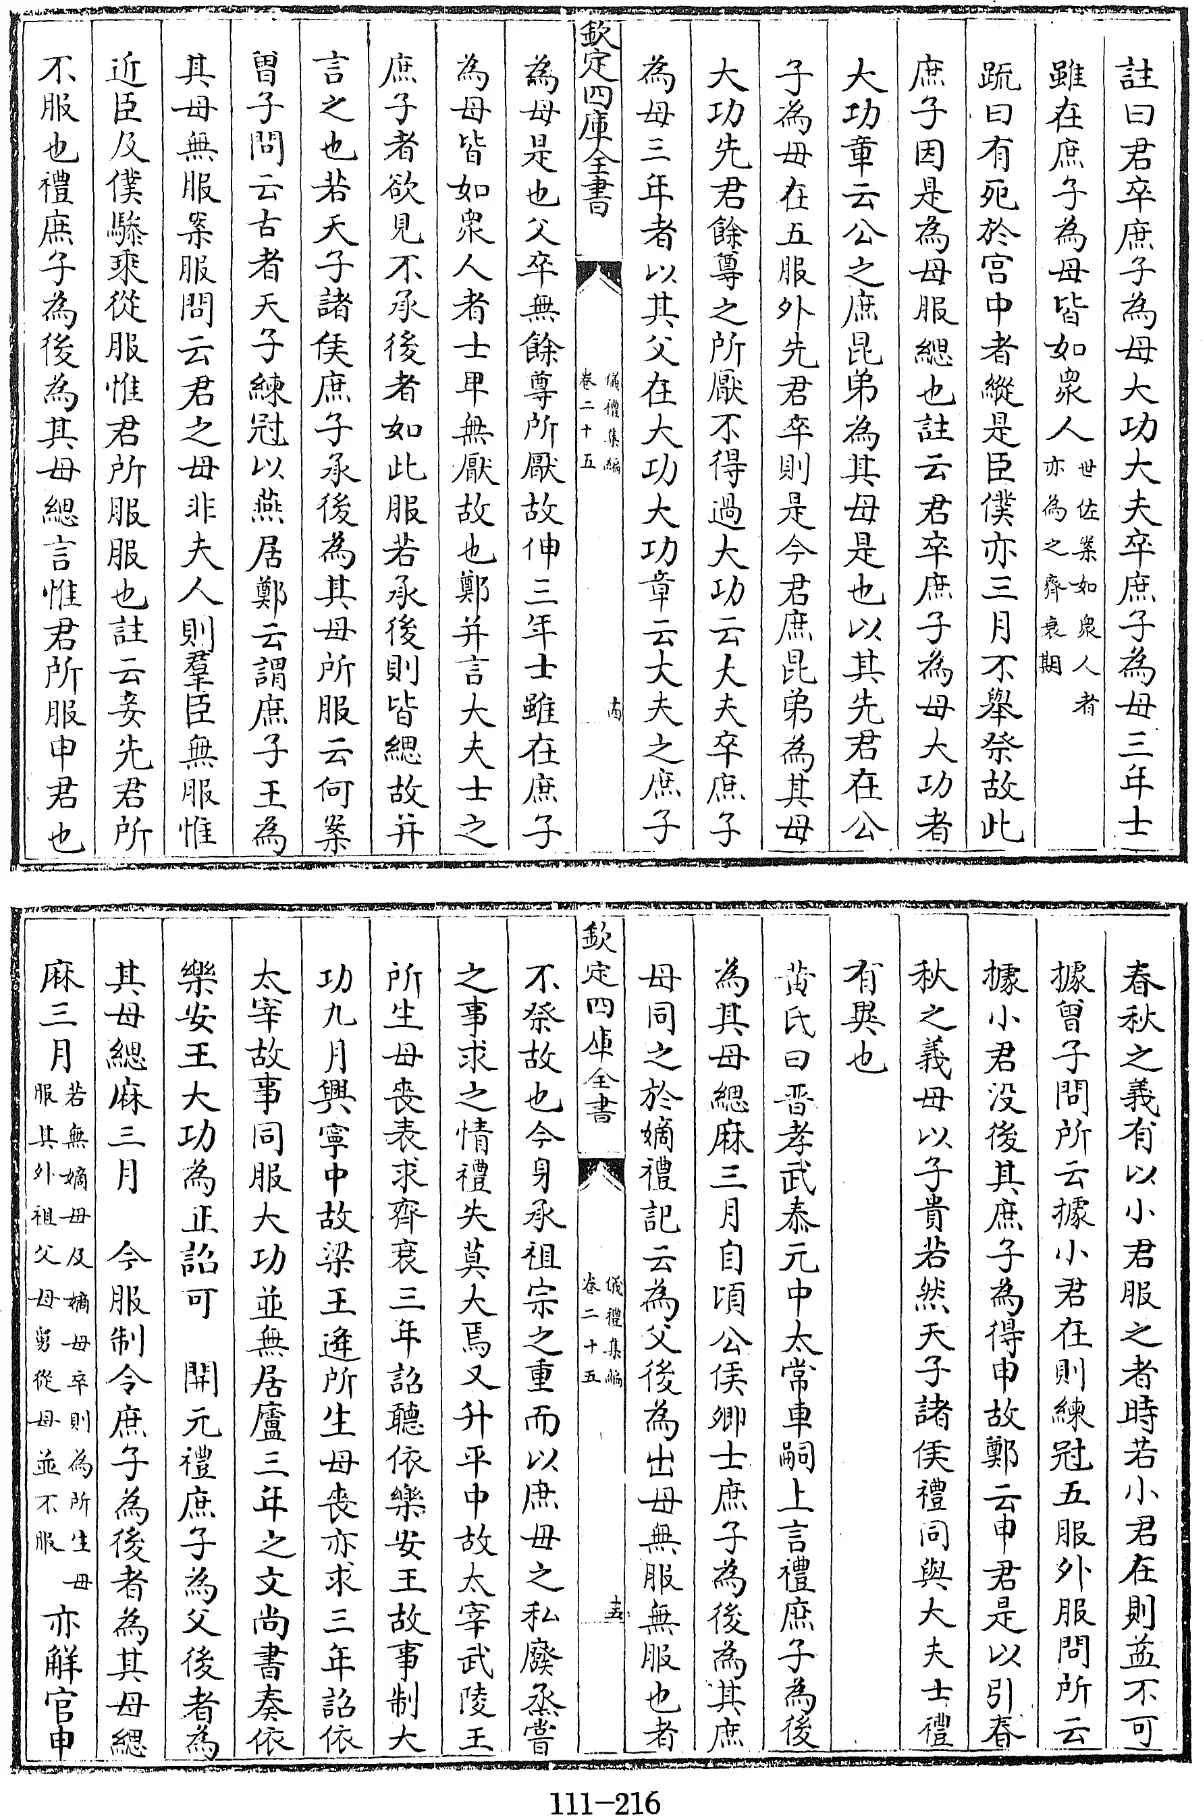 註曰君卒庶子為母大功大夫卒庶子為母三年士
雖在庶子為母皆如衆人世佐案如衆人者亦為之齊衰期
疏曰有死於宫中者縱是臣僕亦三月不舉祭故此
庶子因是為母服緦也註云君卒庶子為母大功者
大功章云公之庶昆弟為其母是也以其先君在公
子為母在五服外先君卒則是今君庶昆弟為其母
大功先君餘尊之所厭不得過大功云大夫卒庶子
為母三年者以其父在大功大功章云大夫之庶子
欽定四庫全書
儀禮集編
卷二十五
十四
為母是也父卒無餘尊所厭故伸三年士雖在庶子
為母皆如衆人者士卑無厭故也鄭并言大夫士之
庶子者欲見不承後者如此服若承後則皆緦故并
言之也若天子諸侯庶子承後為其母所服云何案
曽子問云古者天子練冠以燕居鄭云謂庶子王為
其母無服案服問云君之母非夫人則羣臣無服惟
近臣及僕驂乘從服惟君所服服也註云妾先君所
不服也禮庶子為後為其母緦言惟君所服申君也
春秋之義有以小君服之者時若小君在則益不可
據曽子問所云據小君在則練冠五服外服問所云
據小君没後其庶子為得申故鄭云申君是以引春
秋之義母以子貴若然天子諸侯禮同與大夫士禮
有異也
黄氏曰晋孝武泰元中太常車嗣上言禮庶子為後
為其母緦麻三月自頃公侯卿士庶子為後為其庶
母同之於嫡禮記云為父後為出母無服無服也者
欽定四庫全書
儀禮集編
卷二十五
十五
不祭故也今身承祖宗之重而以庶母之私廢烝嘗
之事求之情禮失莫大焉又升平中故太宰武陵王
所生母喪表求齊衰三年詔聽依樂安王故事制大
功九月興寧中故梁王逢所生母喪亦求三年詔依
太宰故事同服大功並無居廬三年之文尚書奏依
樂安王大功為正詔可　開元禮庶子為父後者為
其母緦麻三月　今服制令庶子為後者為其母緦
麻三月若無嫡母及嫡母卒則為所生母服其外祖父母舅從母並不服亦解官申
111-216